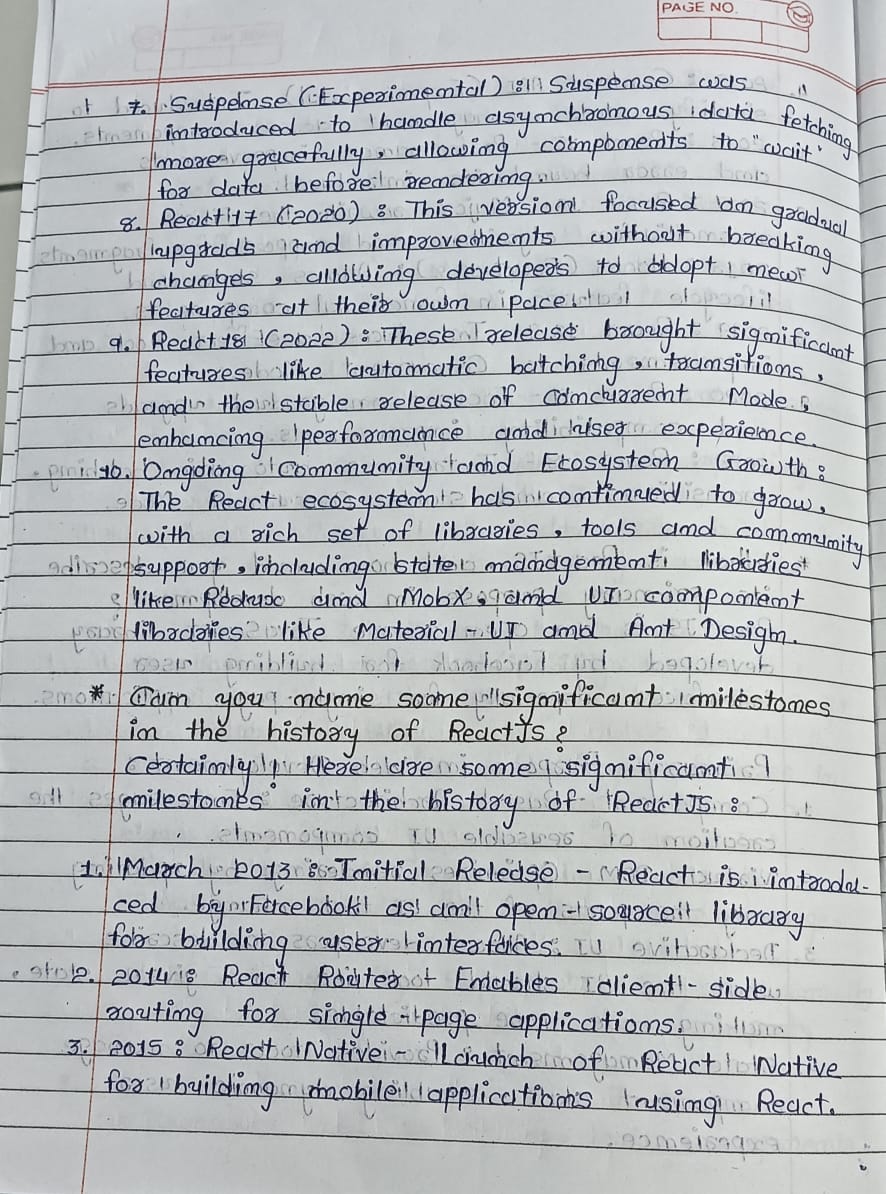 PAGE NO.
7. Suspense (Experimental) : Suspense was
introduced to handle asynchronous data fetching
more gracefully, allowing components to "wait"
for data before rendering.
8. React 17 (2020) : This version focused on gradual
upgrads and improvements without breaking
changes, allowing developers to adopt new
features at their own pace.
9. React 18 (2022) : These release brought significant
features like automatic batching, transitions,
and the stable release of Concurrent Mode,
enhancing performance and user experience.
10. Ongoing Community and Ecosystem Growth :
The React ecosystem has continued to grow,
with a rich set of libraries, tools and community
support, including state management libraries
like Redux and MobX, and UI component
libraries like Material-UI and Ant Design.
* Can you name some significant milestones
in the history of ReactJs ?
Certainly! Here are some significant
milestones in the history of ReactJS :
1. March 2013 : Initial Release - React is introdu-
ced by Facebook as an open-source library
for building user interfaces.
2. 2014 : React Router Enables client-side
routing for single-page applications.
3. 2015 : React Native - Launch of React Native
for building mobile applications using React.